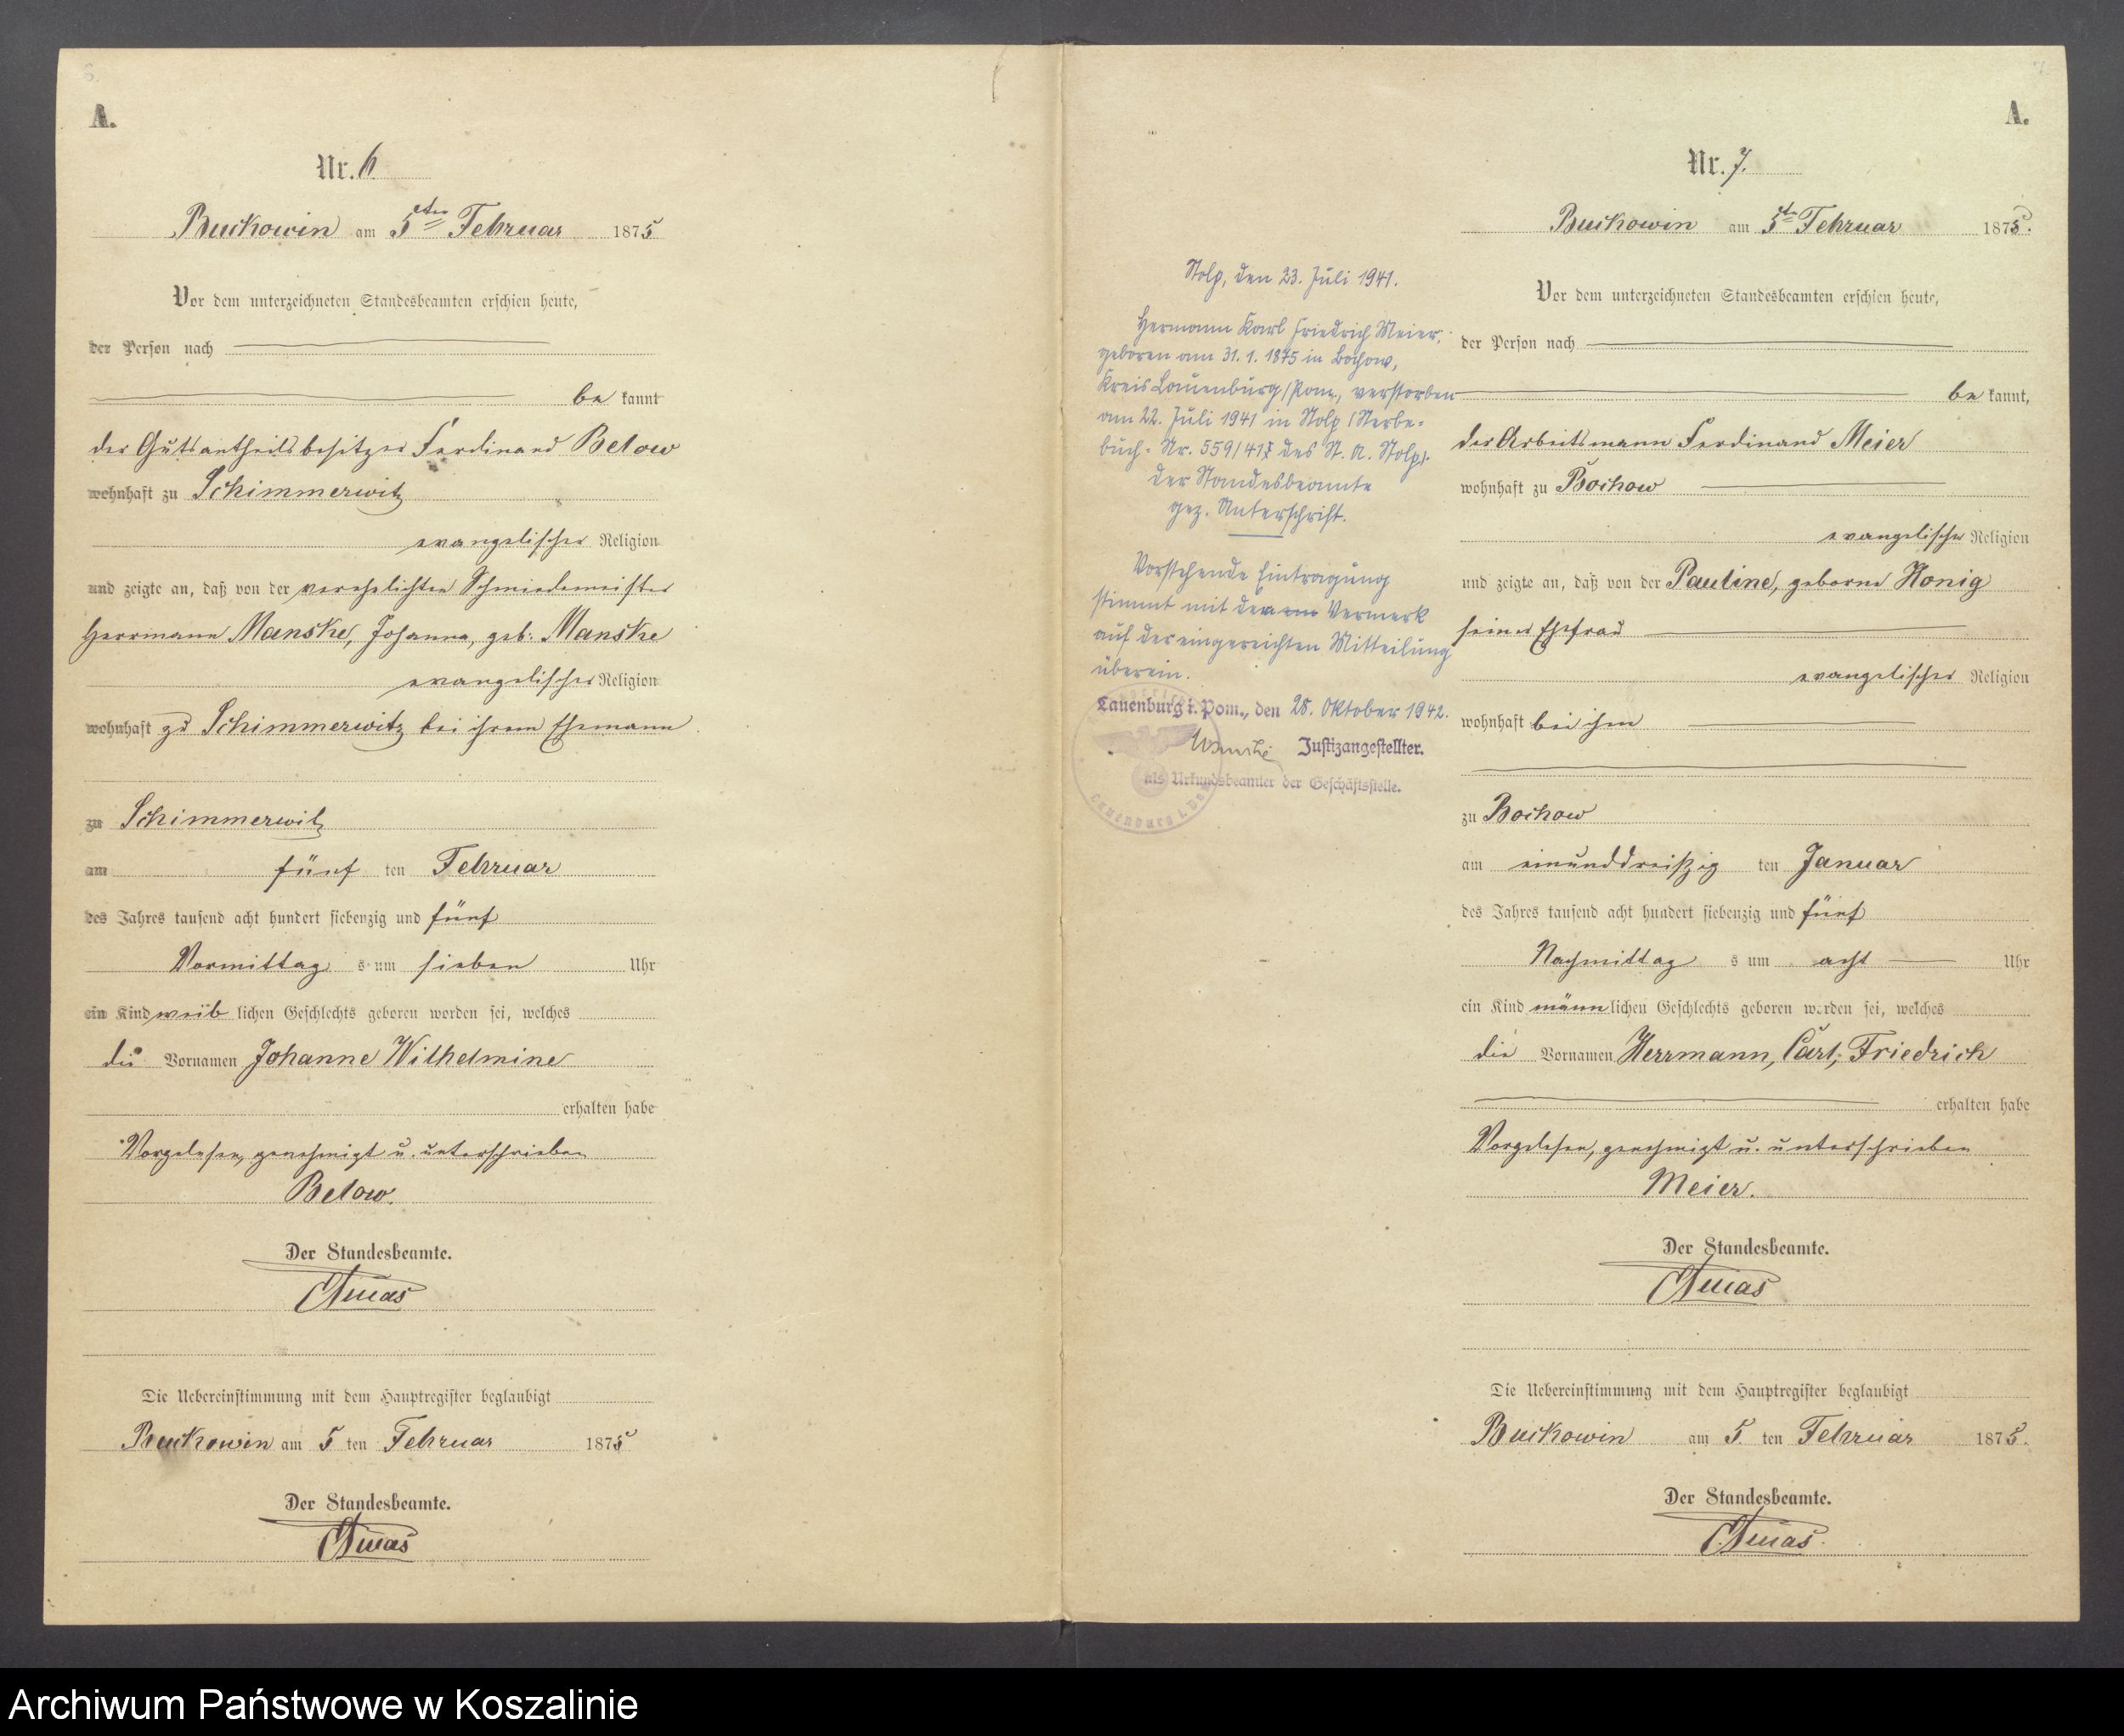 6.
A.
Nr. 6.
Buckowin am 5ten Februar 1875
Vor dem unterzeichneten Standesbeamten erschien heute,
der Person nach
be kannt
der Gutsantheilsbesitzer Ferdinand Below
wohnhaft zu Schimmerwitz
evangelischer Religion
und zeigte an, daß von der verehelichten Schmiedemeister
Herrmann Manske, Johanna, geb. Manske
evangelischer Religion
wohnhaft zu Schimmerwitz bei ihrem Ehemann
zu Schimmerwitz
am fünf ten Februar
des Jahres tausend acht hundert siebenzig und fünf
Vormittag s um sieben Uhr
ein Kind weib lichen Geschlechts geboren worden sei, welches
die Vornamen Johanne Wilhelmine
erhalten habe
Vorgelesen, genehmigt u. unterschrieben
Below.
Der Standesbeamte.
Die Uebereinstimmung mit dem Hauptregister beglaubigt
Buckowin am 5 ten Februar 1875
Der Standesbeamte.
7.
A.
Nr. 7.
Buckowin am 5ten Februar 1875.
Vor dem unterzeichneten Standesbeamten erschien heute,
der Person nach
be kannt,
der Arbeitsmann Ferdinand Meier
wohnhaft zu Bochow
evangelischer Religion
und zeigte an, daß von der Pauline, geborne Honig
seiner Ehefrau
evangelischer Religion
wohnhaft bei ihm
zu Bochow
am einunddreißig ten Januar
des Jahres tausend acht hundert siebenzig und fünf
Nachmittag s um acht Uhr
ein Kind männ lichen Geschlechts geboren worden sei, welches
die Vornamen Herrmann, Carl, Friedrich
erhalten habe
Vorgelesen, genehmigt u. unterschrieben
Meier.
Der Standesbeamte.
Die Uebereinstimmung mit dem Hauptregister beglaubigt
Buckowin am 5. ten Februar 1875.
Der Standesbeamte.
Stolp, den 23. Juli 1941.
Hermann Karl Friedrich Meier,
geboren am 31. 1. 1875 in Bochow,
Kreis Lauenburg/Pom., verstorben
am 22. Juli 1941 in Stolp (Sterbe-
buch-Nr. 559/41 des St. A. Stolp).
Der Standesbeamte
gez. Unterschrift.
Vorstehende Eintragung
stimmt mit dem Vermerk
auf der eingereichten Mitteilung
überein.
Lauenburg i. Pom., den 28. Oktober 1942.
Justizangestellter.
als Urkundsbeamter der Geschäftsstelle.
Archiwum Państwowe w Koszalinie